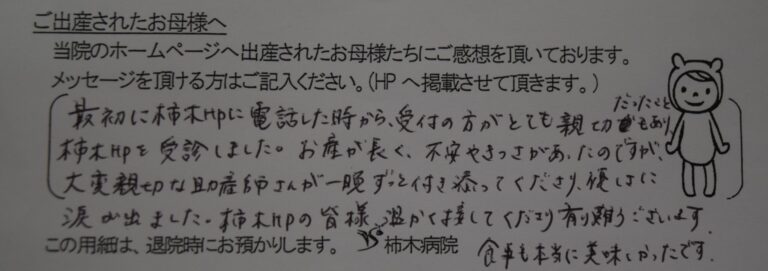 ご出産されたお母様へ
当院のホームページへ出産されたお母様たちにご感想を頂いております。
メッセージを頂ける方はご記入ください。(HPへ掲載させて頂きます。)
最初に柿木HPに電話した時から、受付の方がとても親切だったこともあり
柿木HPを受診しました。お産が長く、不安やきつさがあったのですが、
大変親切な助産師さんが一晩ずっと付き添ってくださり、優しさに
涙が出ました。柿木HPの皆様、温かく接してくださり有り難うございます。
この用紙は、退院時にお預かりします。 柿木病院
食事も本当に美味しかったです。